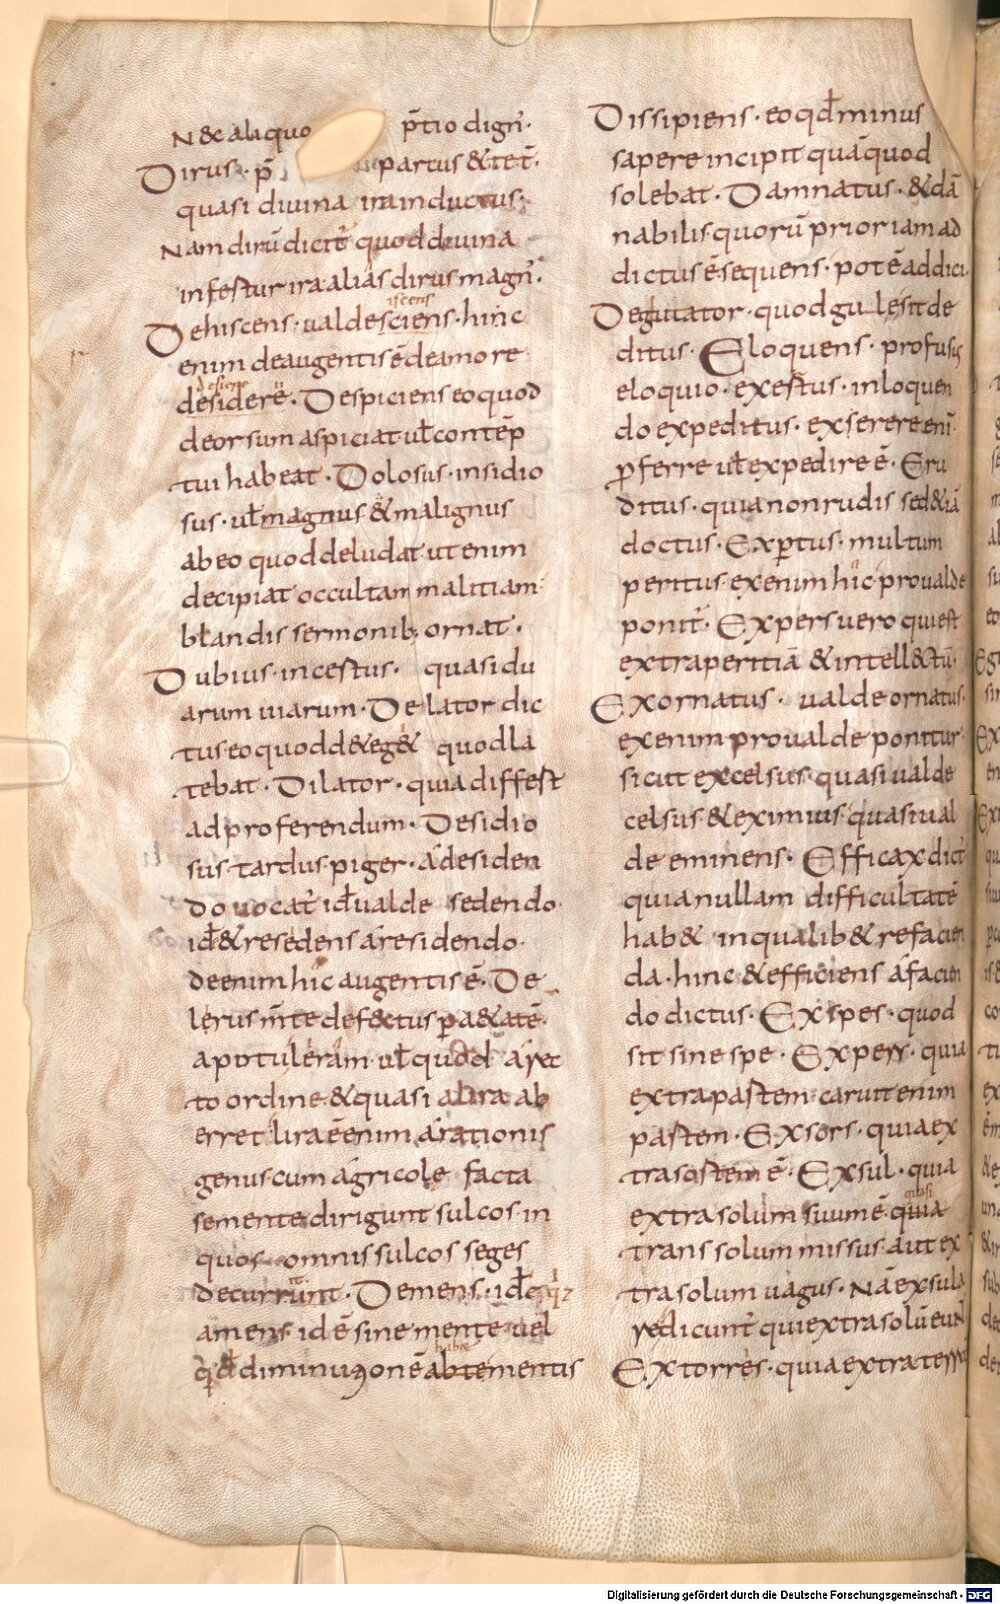 N& aliquo p̄tio dign̄·
Dirus· p̄ partus & tet̄·
quasi diuina ira inductus·
Nam dirū dicit̄ quod diuina
infestur ira alias dirus magn̄·
Dehiscens· ualde sciens· hinc
iscens
enim de augentis ē de amore
desiderē· Despiciens eo quod
desidere
deorsum aspiciat· ut̄ contēp
tui habeat· Dolosus· insidio
sus· ut̄ magnus & malignus
ab eo quod deludat· ut enim
decipiat occultam malitiam·
blandis sermonib; ornat·
Dubius· incestus· quasi du
arum uiarum· Delator dic
tus· eo quod d&eg& quod la
tebat· Dilator· quia differt
ad proferendum· Desidio
sus· tardus· piger· a desiden
do uocat̄ id̄ ualde sedendo·
id̄ & resedens a residendo·
de enim hic augentis ē· De
lerus m̄te def&ctus p a&atē·
aptuleram· ut̄ quod a rec
to ordine· & quasi a lira ab
erret· lira ē enim arationis
genus cum agricole facta
semente dirigunt sulcos· in
quos omnis sulcos seges
decurrunt· Demens· id̄
amens· id ē sine mente· uel
habe
diminu9onē abte mentis
Dissipiens· eo qd̄ minus
sapere incipit quā quod
solebat· Damnatus· & dā
nabilis· quorū prior iam ad
dictus ē· sequens· pot ē addici·
Degulator· quod gule sit de
ditus· Eloquens· profusis
eloquio· exestus· in loquen
do expeditus· exserere enī
p̄ferre ut̄ expedire ē· Eru
ditus· quia non rudis sed & iā
doctus· Exptus· multum
peritus· ex enim hic pro ualde
ponit̄· Expers uero qui est
extra peritiā & intell&ctū·
Exornatus· ualde ornatus·
ex enim pro ualde ponitur·
sicut excelsus· quasi ualde
celsus· & eximius quasi ual
de eminens· Efficax dict̄
quia nullam difficultatē
hab& in qualib& re facien
da· hinc & efficiens a facien
do dictus· Exspes· quod
sit sine spe· Expers· quia
extra partem· caruit enim
partem· Exsors· quia ex
tra sortem ē· Exsul· quia
quasi
extra solum suum ē· quia
trans solum missus· aut ex
tra solum uagus· Nā exsula
re dicunt̄ qui extra solū eunt̄
Extorres· quia extra terrā